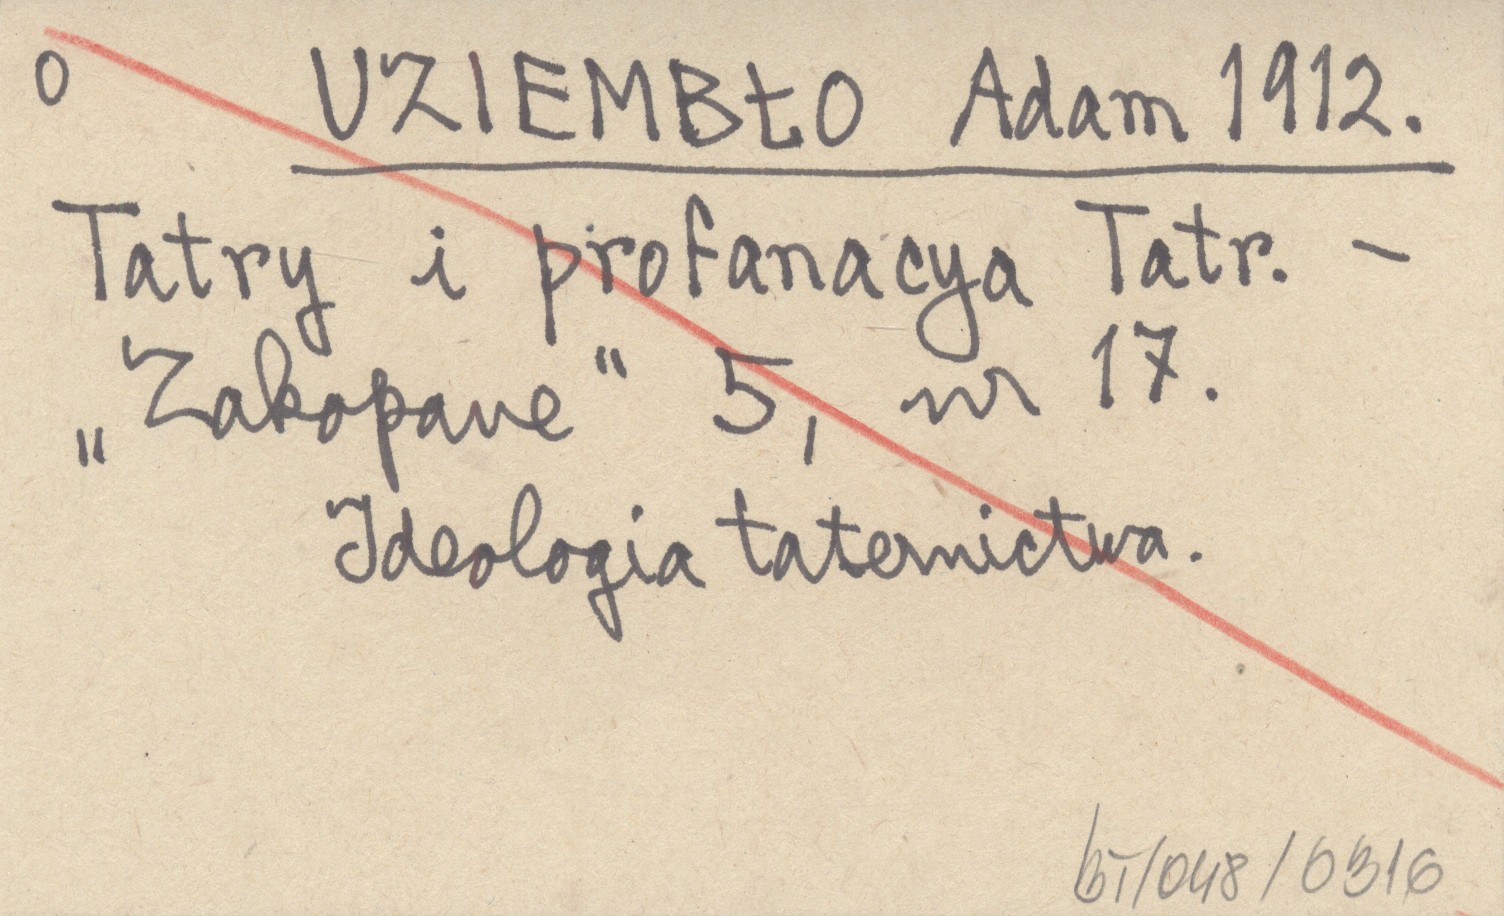 O UZIEMBŁO Adam 1912.
Tatry i profanacya Tatr. –
„Zakopane" 5, nr 17.
Ideologia taternictwa.
bT/048/0316